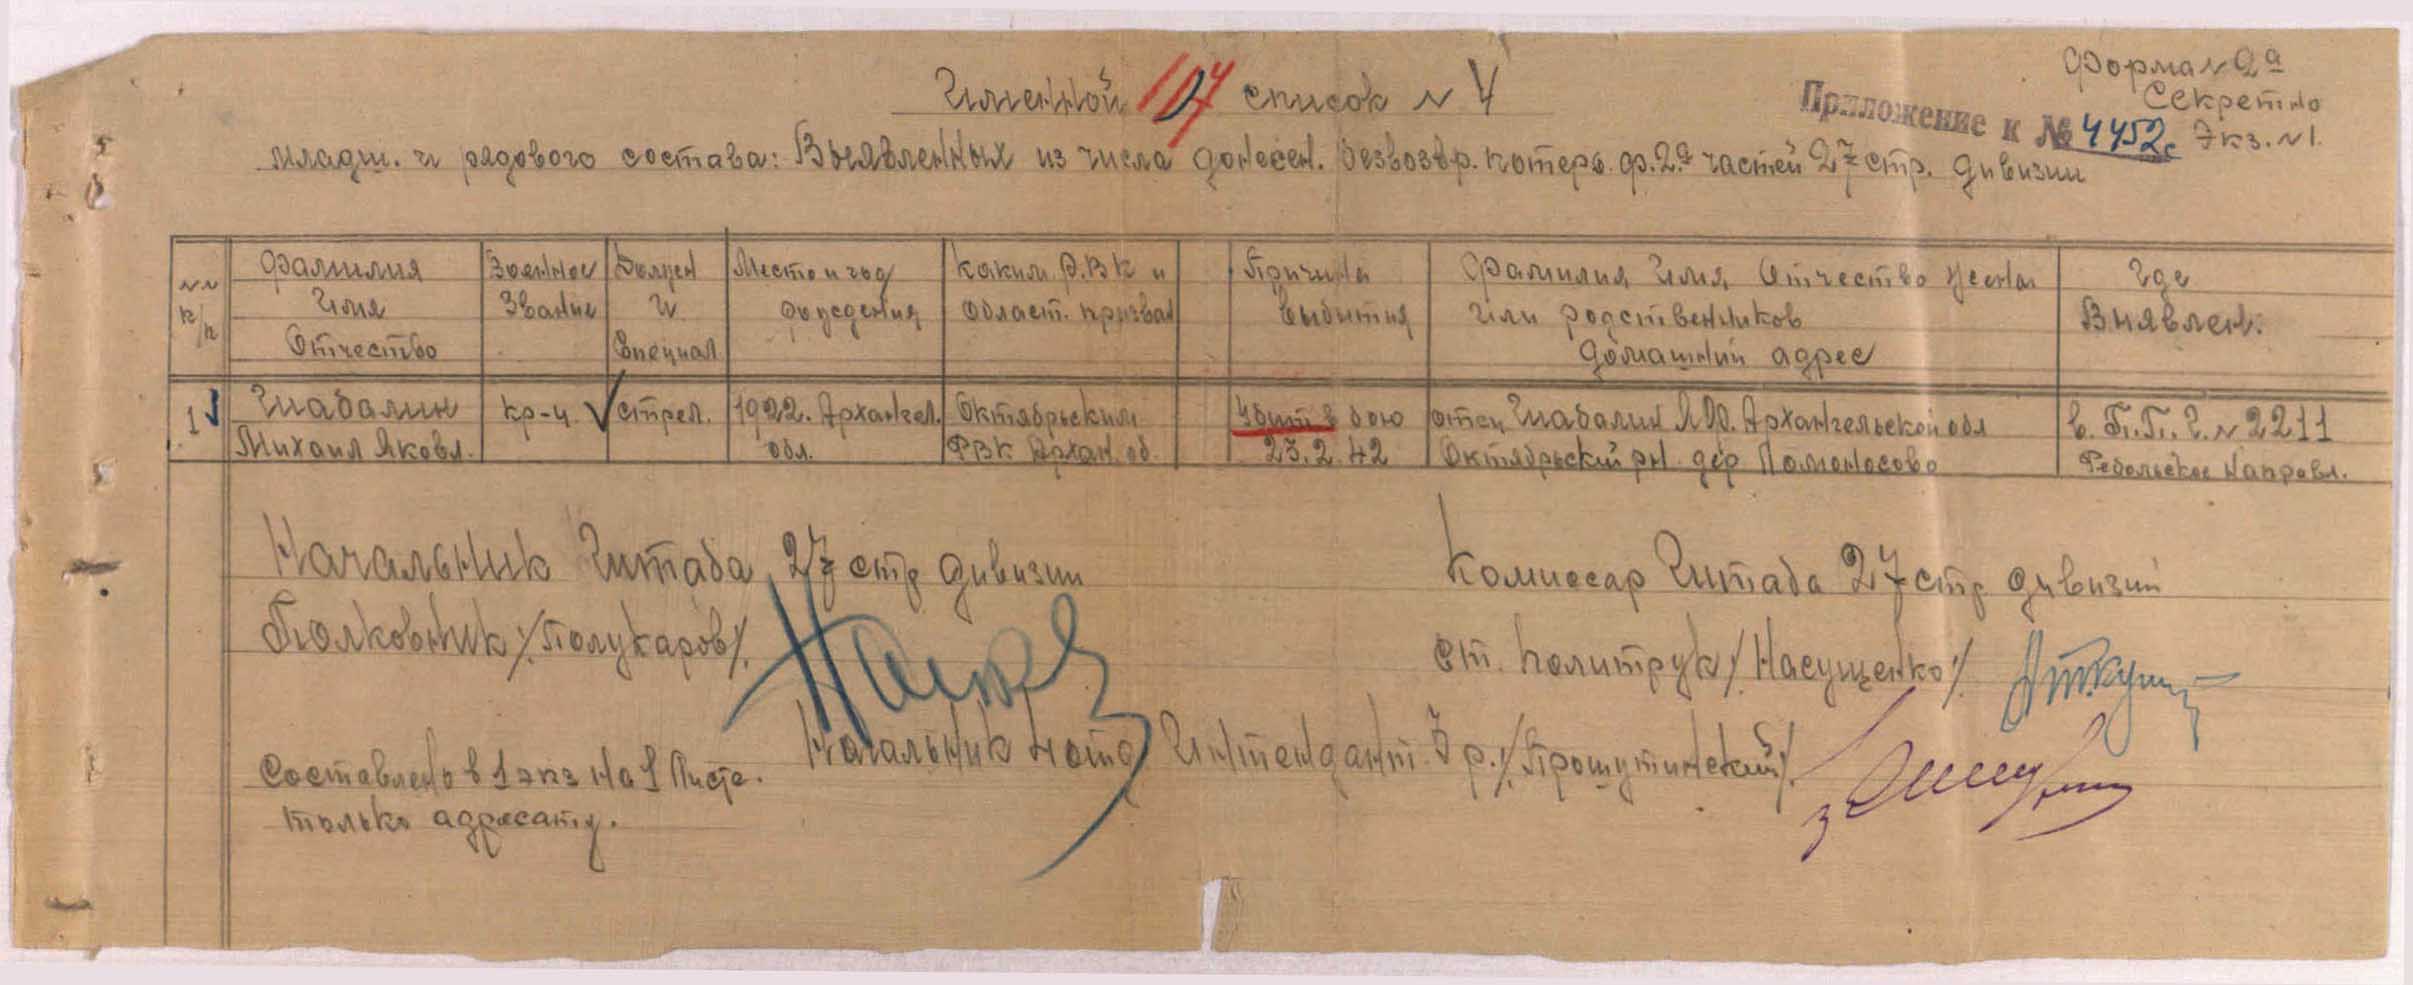 Форма N 2а
Секретно
Экз. N 1.
Приложение к № 4452с
Именной список N 4
107
младш. и рядового состава: Выявленных из числа донесен. безвозвр. потерь. ф. 2а частей 27 стр. дивизии
NN п/п
Фамилия Имя Отчество
Военное Звание
Должн и Специал
Место и год рождения
Каким Р.В.К и област. призван
Причина выбытия
Фамилия Имя Отчество жены или родственников домашний адрес
Где Выявлен.
1
Шабалин Михаил Яковл.
кр-ц
стрел.
1922. Архангел. обл.
Октябрьским РВК Архан. об.
Убит в бою 23.2.42
отец Шабалин Я.Ф. Архангельской обл Октябрьский рн. дер Ломоносово
в. П.П.Г. N 2211 Ребольское направл.
Начальник Штаба 27 стр дивизии
Полковник /Полукаров/.
Комиссар Штаба 27 стр дивизии
ст. политрук /Насущенко/.
Начальник 4 отд Интендант 3 р. /Прошутинский/.
Составлено в 1 экз на 1 Листе.
только адресату.